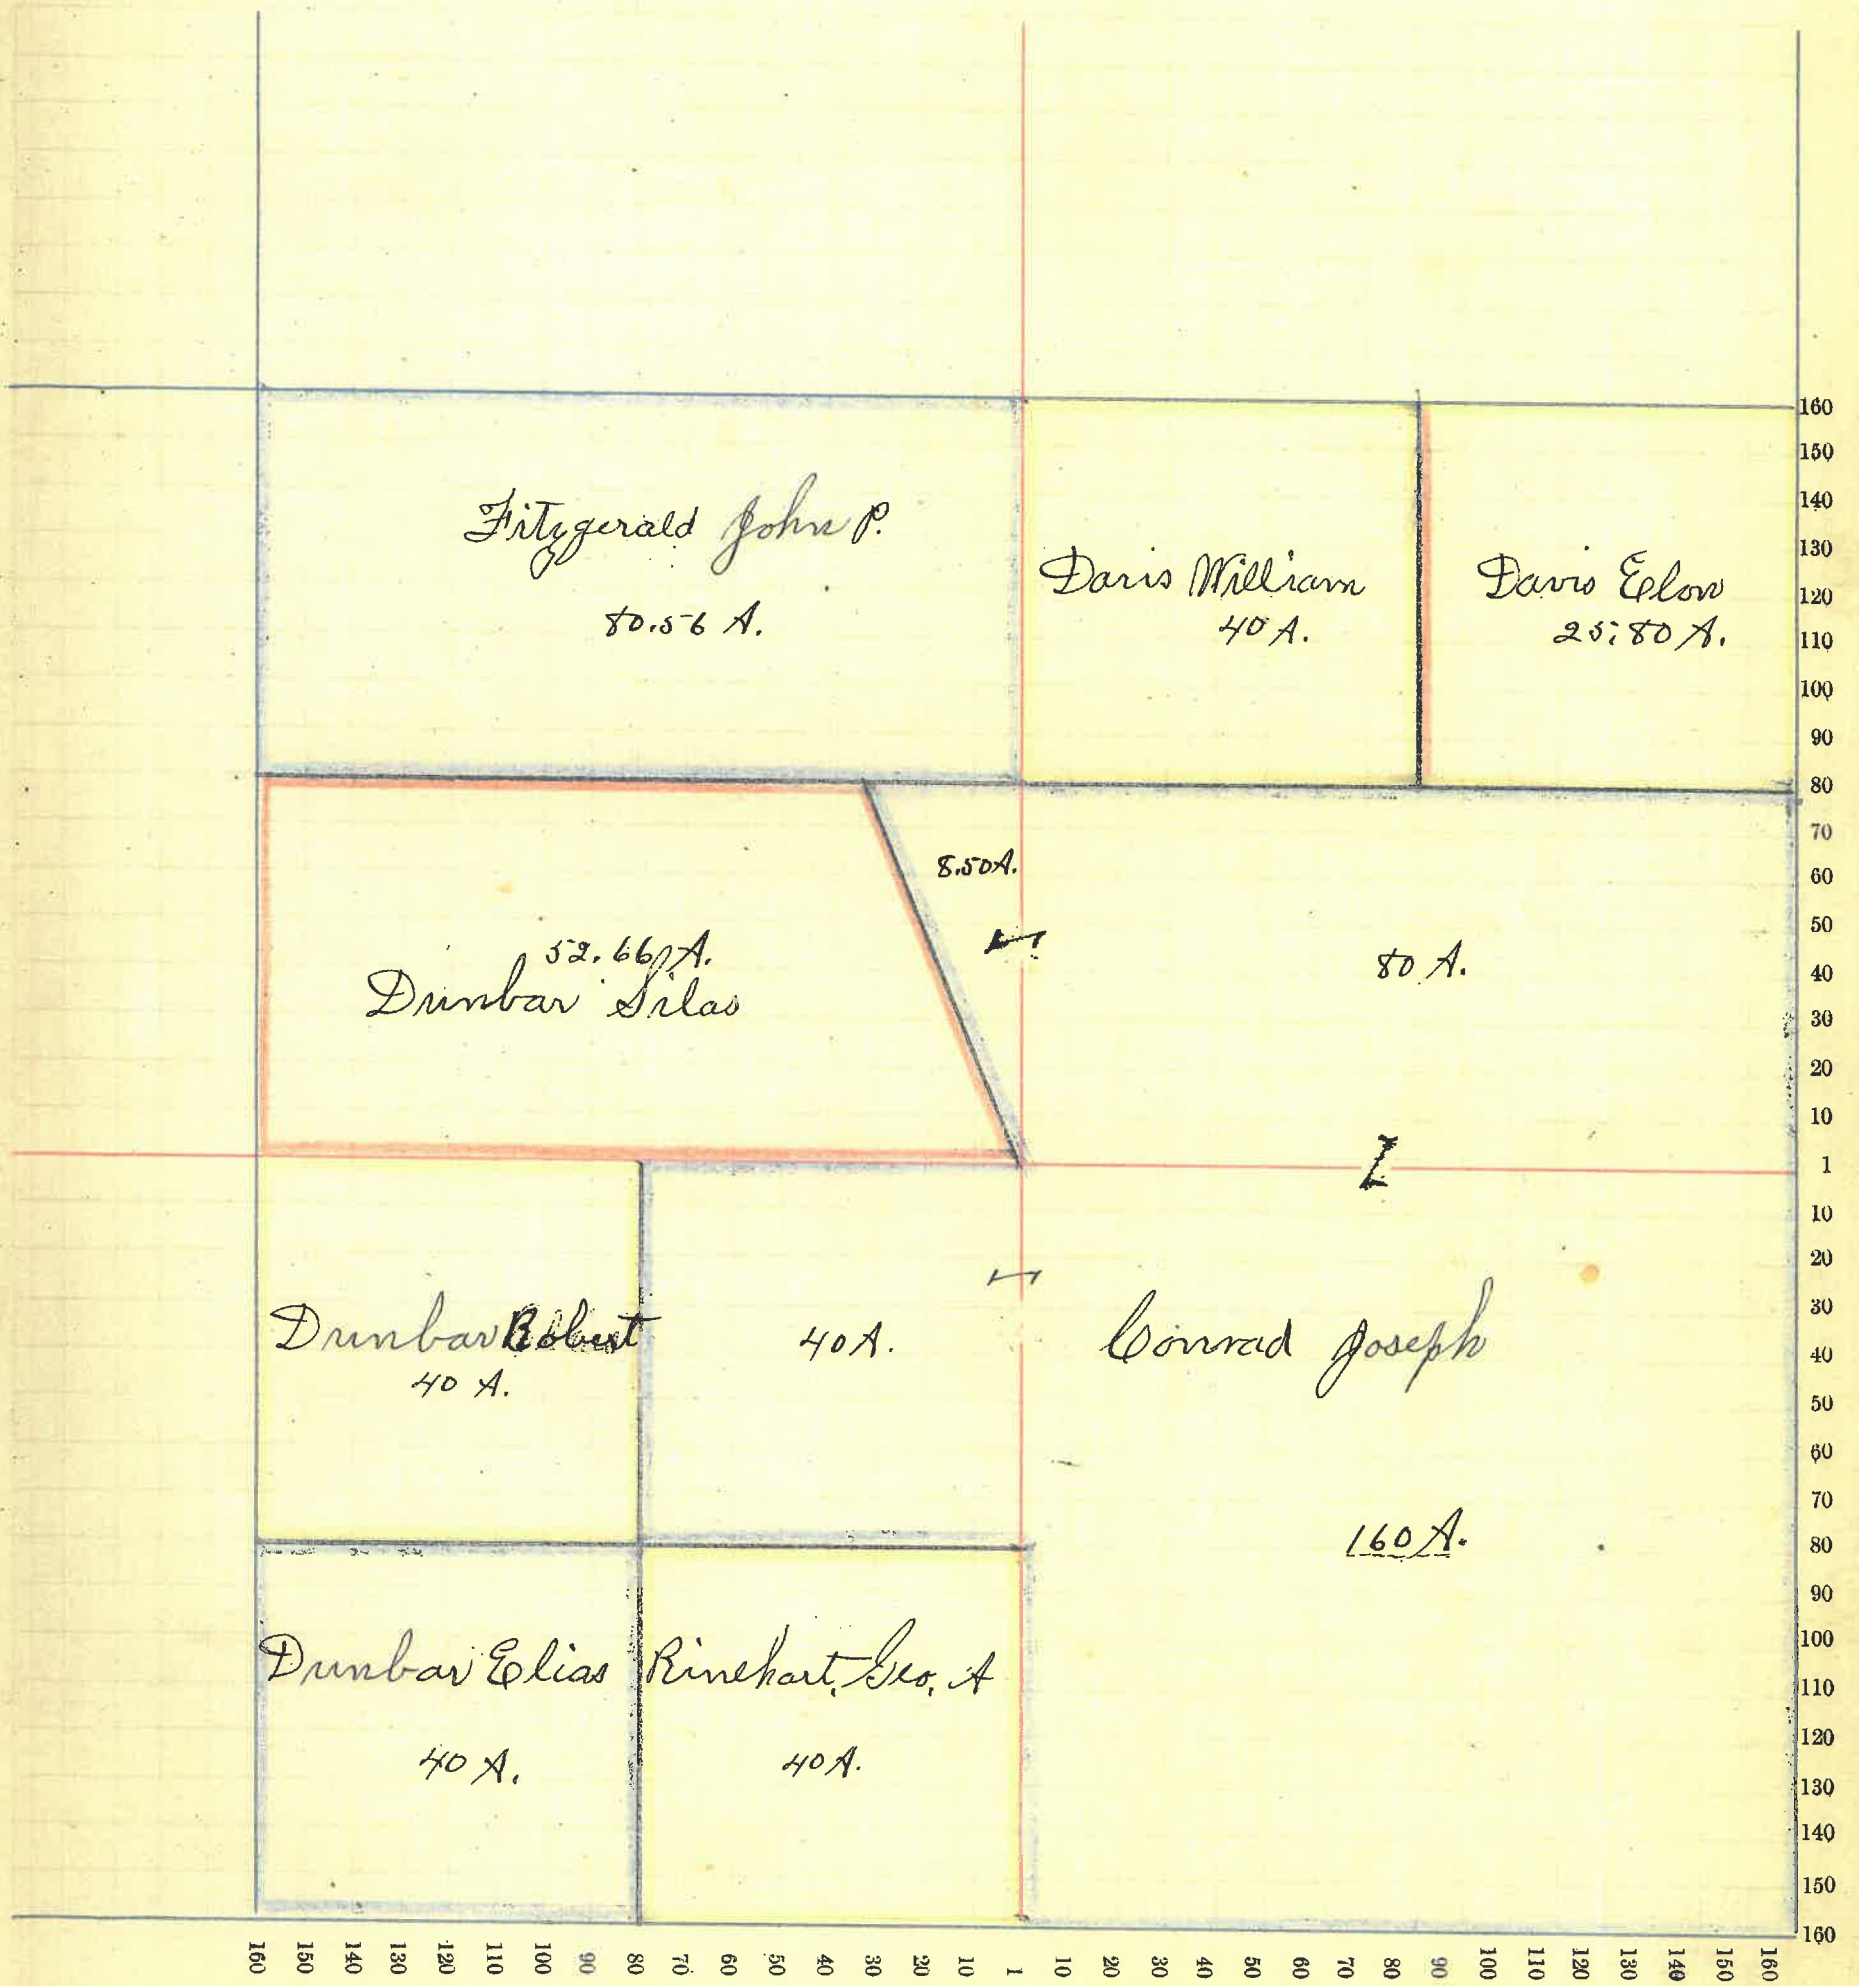 Fitzgerald John P.
80.56 A.
Davis William
40 A.
Davis Elon
25.80 A.
8.50 A.
52.66 A.
Dunbar Silas
80 A.
Dunbar Robert
40 A.
40 A.
Conrad Joseph
160 A.
Dunbar Elias
40 A.
Rinehart, Geo, A
40 A.
160
150
140
130
120
110
100
90
80
70
60
50
40
30
20
10
1
10
20
30
40
50
60
70
80
90
100
110
120
130
140
150
160
160 150 140 130 120 110 100 90 80 70 60 50 40 30 20 10 1 10 20 30 40 50 60 70 80 90 100 110 120 130 140 150 160